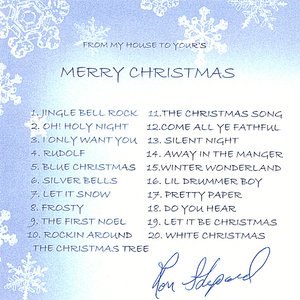 FROM MY HOUSE TO YOUR'S
MERRY CHRISTMAS
1. JINGLE BELL ROCK
2. OH! HOLY NIGHT
3. I ONLY WANT YOU
4. RUDOLF
5. BLUE CHRISTMAS
6. SILVER BELLS
7. LET IT SNOW
8. FROSTY
9. THE FIRST NOEL
10. ROCKIN AROUND
THE CHRISTMAS TREE
11. THE CHRISTMAS SONG
12. COME ALL YE FAITHFUL
13. SILENT NIGHT
14. AWAY IN THE MANGER
15. WINTER WONDERLAND
16. LIL DRUMMER BOY
17. PRETTY PAPER
18. DO YOU HEAR
19. LET IT BE CHRISTMAS
20. WHITE CHRISTMAS
Ron Shepard